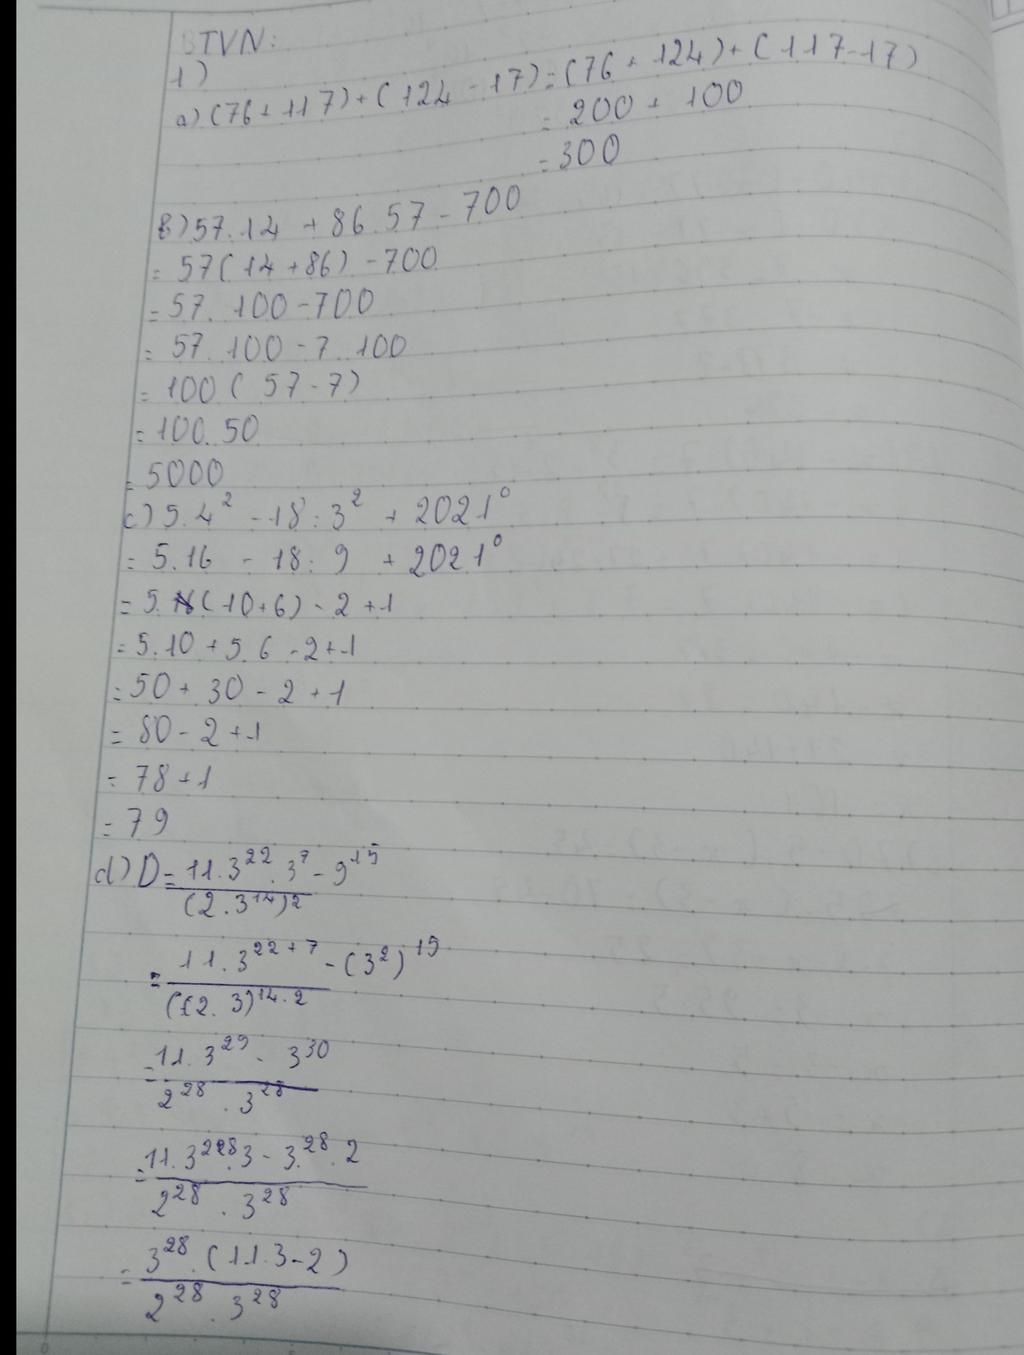 BTVN:
1)
a) (76 + 117) + (124 - 17) = (76 + 124) + (117 - 17)
= 200 + 100
= 300
b) 57.14 + 86.57 - 700
= 57(14 + 86) - 700
= 57.100 - 700
= 57.100 - 7.100
= 100(57 - 7)
= 100.50
= 5000
c) 5.4² - 18 : 3² + 2021⁰
= 5.16 - 18 : 9 + 2021⁰
= 5.(10 + 6) - 2 + 1
= 5.10 + 5.6 - 2 + 1
= 50 + 30 - 2 + 1
= 80 - 2 + 1
= 78 + 1
= 79
d) D = 11.3²².3⁷ - 9¹⁵
(2.3¹⁴)²
= 11.3²²⁺⁷ - (3²)¹⁵
(2.3)¹⁴·²
= 11.3²⁹ - 3³⁰
2²⁸.3²⁸
= 11.3²⁸.3 - 3²⁸.2
2²⁸.3²⁸
= 3²⁸.(11.3 - 2)
2²⁸.3²⁸